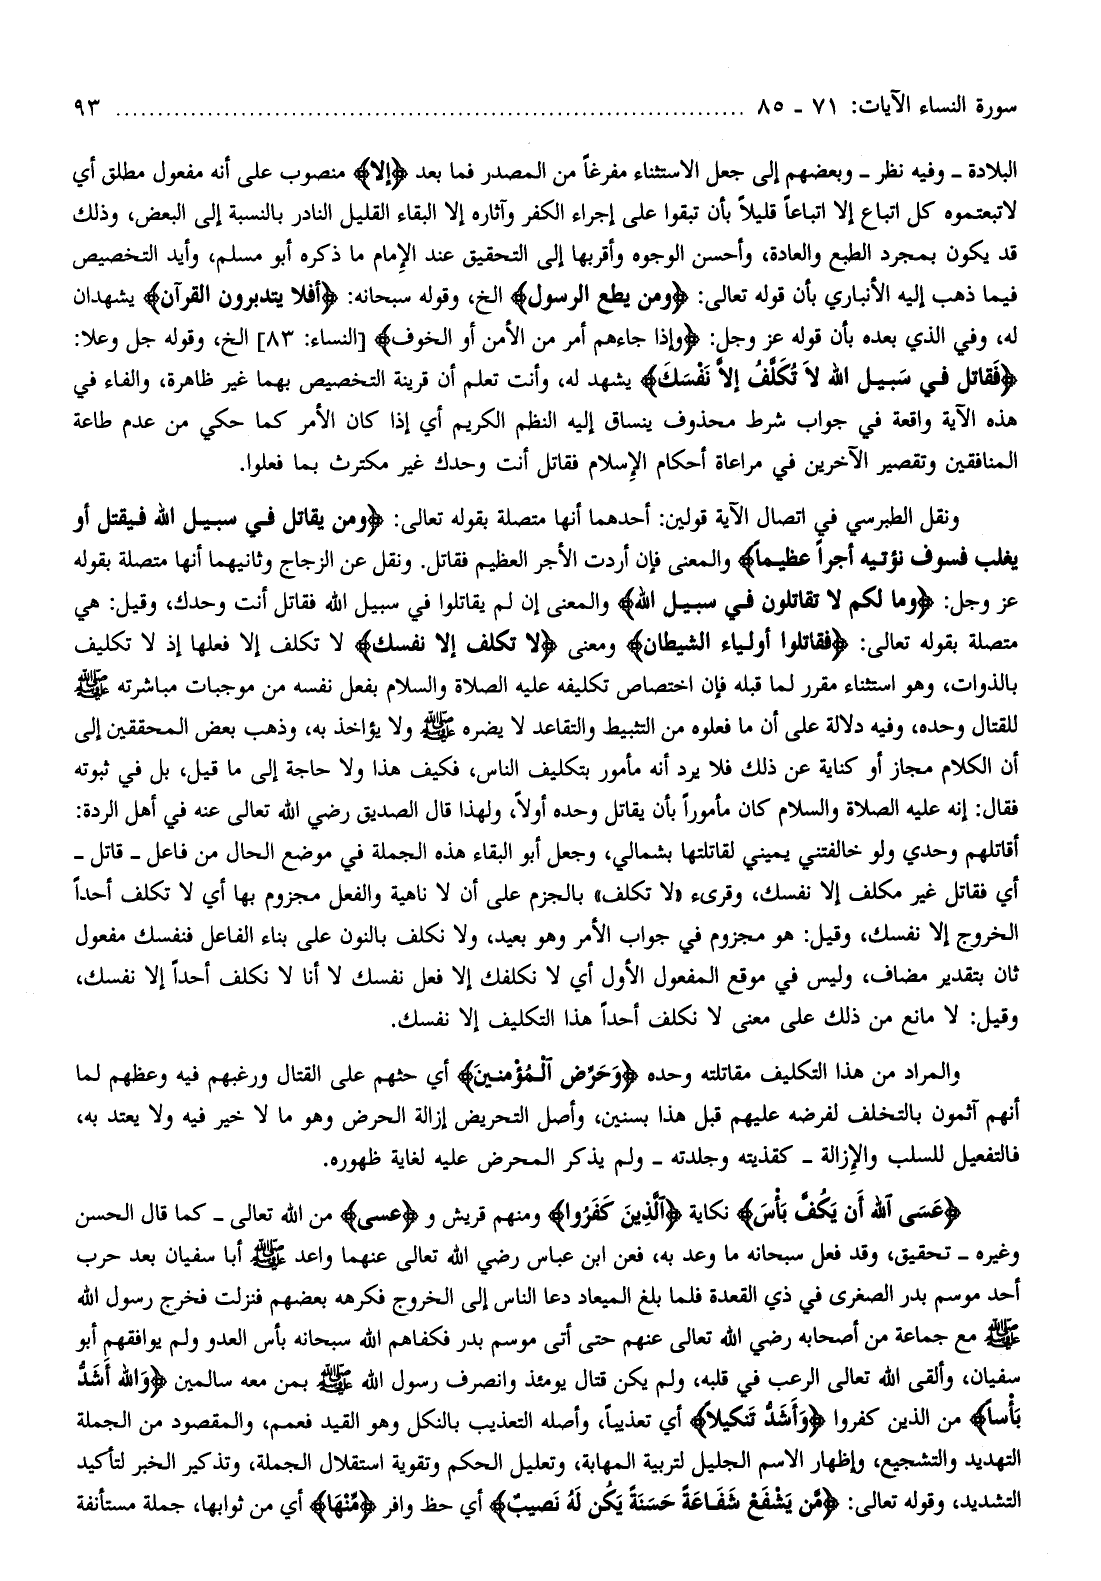 سورة النساء الآيات: ٧١ ـ ٨٥ ........................................................................... ٩٣
البلادة ـ وفيه نظر ـ وبعضهم إلى جعل الاستثناء مفرغاً من المصدر فما بعد ﴿إلا﴾ منصوب على أنه مفعول مطلق أي
لاتبعتموه كل اتباع إلا اتباعاً قليلاً بأن تبقوا على إجراء الكفر وآثاره إلا البقاء القليل النادر بالنسبة إلى البعض، وذلك
قد يكون بمجرد الطبع والعادة، وأحسن الوجوه وأقربها إلى التحقيق عند الإمام ما ذكره أبو مسلم، وأيد التخصيص
فيما ذهب إليه الأنباري بأن قوله تعالى: ﴿ومن يطع الرسول﴾ الخ، وقوله سبحانه: ﴿أفلا يتدبرون القرآن﴾ يشهدان
له، وفي الذي بعده بأن قوله عز وجل: ﴿وإذا جاءهم أمر من الأمن أو الخوف﴾ [النساء: ٨٣] الخ، وقوله جل وعلا:
﴿فَقاتل في سَبيل الله لاَ تُكَلَّفُ إلاَّ نَفْسَكَ﴾ يشهد له، وأنت تعلم أن قرينة التخصيص بهما غير ظاهرة، والفاء في
هذه الآية واقعة في جواب شرط محذوف ينساق إليه النظم الكريم أي إذا كان الأمر كما حكي من عدم طاعة
المنافقين وتقصير الآخرين في مراعاة أحكام الإسلام فقاتل أنت وحدك غير مكترث بما فعلوا.
ونقل الطبرسي في اتصال الآية قولين: أحدهما أنها متصلة بقوله تعالى: ﴿ومن يقاتل في سبيل الله فيقتل أو
يغلب فسوف نؤتيه أجراً عظيماً﴾ والمعنى فإن أردت الأجر العظيم فقاتل. ونقل عن الزجاج وثانيهما أنها متصلة بقوله
عز وجل: ﴿وما لكم لا تقاتلون في سبيل الله﴾ والمعنى إن لم يقاتلوا في سبيل الله فقاتل أنت وحدك، وقيل: هي
متصلة بقوله تعالى: ﴿فقاتلوا أولياء الشيطان﴾ ومعنى ﴿لا تكلف إلا نفسك﴾ لا تكلف إلا فعلها إذ لا تكليف
بالذوات، وهو استثناء مقرر لما قبله فإن اختصاص تكليفه عليه الصلاة والسلام بفعل نفسه من موجبات مباشرته ﷺ
للقتال وحده، وفيه دلالة على أن ما فعلوه من التثبيط والتقاعد لا يضره ﷺ ولا يؤاخذ به، وذهب بعض المحققين إلى
أن الكلام مجاز أو كناية عن ذلك فلا يرد أنه مأمور بتكليف الناس، فكيف هذا ولا حاجة إلى ما قيل، بل في ثبوته
فقال: إنه عليه الصلاة والسلام كان مأموراً بأن يقاتل وحده أولاً، ولهذا قال الصديق رضي الله تعالى عنه في أهل الردة:
أقاتلهم وحدي ولو خالفتني يميني لقاتلتها بشمالي، وجعل أبو البقاء هذه الجملة في موضع الحال من فاعل ـ قاتل ـ
أي فقاتل غير مكلف إلا نفسك، وقرىء «لا تكلف» بالجزم على أن لا ناهية والفعل مجزوم بها أي لا تكلف أحداً
الخروج إلا نفسك، وقيل: هو مجزوم في جواب الأمر وهو بعيد، ولا نكلف بالنون على بناء الفاعل فنفسك مفعول
ثان بتقدير مضاف، وليس في موقع المفعول الأول أي لا نكلفك إلا فعل نفسك لا أنا لا نكلف أحداً إلا نفسك،
وقيل: لا مانع من ذلك على معنى لا نكلف أحداً هذا التكليف إلا نفسك.
والمراد من هذا التكليف مقاتلته وحده ﴿وَحَرِّض ٱلْمُؤْمنينَ﴾ أي حثهم على القتال ورغبهم فيه وعظهم لما
أنهم آثمون بالتخلف لفرضه عليهم قبل هذا بسنين، وأصل التحريض إزالة الحرض وهو ما لا خير فيه ولا يعتد به،
فالتفعيل للسلب والإزالة ـ كقذيته وجلدته ـ ولم يذكر المحرض عليه لغاية ظهوره.
﴿عَسَى ٱلله أَن يَكُفَّ بَأْسَ﴾ نكاية ﴿ٱلَّذِينَ كَفَرُوا﴾ ومنهم قريش و ﴿عسى﴾ من الله تعالى ـ كما قال الحسن
وغيره ـ تحقيق، وقد فعل سبحانه ما وعد به، فعن ابن عباس رضي الله تعالى عنهما واعد ﷺ أبا سفيان بعد حرب
أحد موسم بدر الصغرى في ذي القعدة فلما بلغ الميعاد دعا الناس إلى الخروج فكرهه بعضهم فنزلت فخرج رسول الله
ﷺ مع جماعة من أصحابه رضي الله تعالى عنهم حتى أتى موسم بدر فكفاهم الله سبحانه بأس العدو ولم يوافقهم أبو
سفيان، وألقى الله تعالى الرعب في قلبه، ولم يكن قتال يومئذ وانصرف رسول الله ﷺ بمن معه سالمين ﴿وَالله أَشَدُّ
بَأْساً﴾ من الذين كفروا ﴿وَأَشَدُّ تَنكيلاً﴾ أي تعذيباً، وأصله التعذيب بالنكل وهو القيد فعمم، والمقصود من الجملة
التهديد والتشجيع، وإظهار الاسم الجليل لتربية المهابة، وتعليل الحكم وتقوية استقلال الجملة، وتذكير الخبر لتأكيد
التشديد، وقوله تعالى: ﴿مَّن يَشْفَعْ شَفَاعَةً حَسَنَةً يَكُن لَهُ نَصيبٌ﴾ أي حظ وافر ﴿مِّنْهَا﴾ أي من ثوابها، جملة مستأنفة